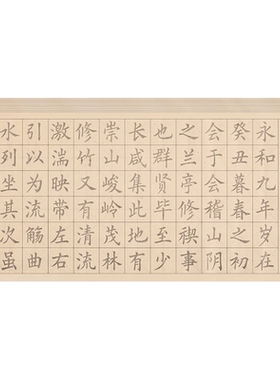 永和九年岁在
癸丑暮春之初
会于会稽山阴
之兰亭修禊事
也群贤毕至少
长咸集此地有
崇山峻岭茂林
修竹又有清流
激湍映带左右
引以为流觞曲
水列坐其次虽